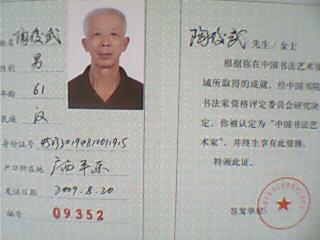 姓名 陶俊武
性别 男
年龄 61
民族 汉
身份证号
户口所在地 广西平乐
发证日期 2009.8.20
编号 09352
陶俊武 先生/女士
根据你在中国书法艺术领
域所取得的成就，经中国书院
书法家资格评定委员会研究决
定，你被认定为“中国书法艺
术家”，并终生享有此资格。
特颁此证。
签发单位：